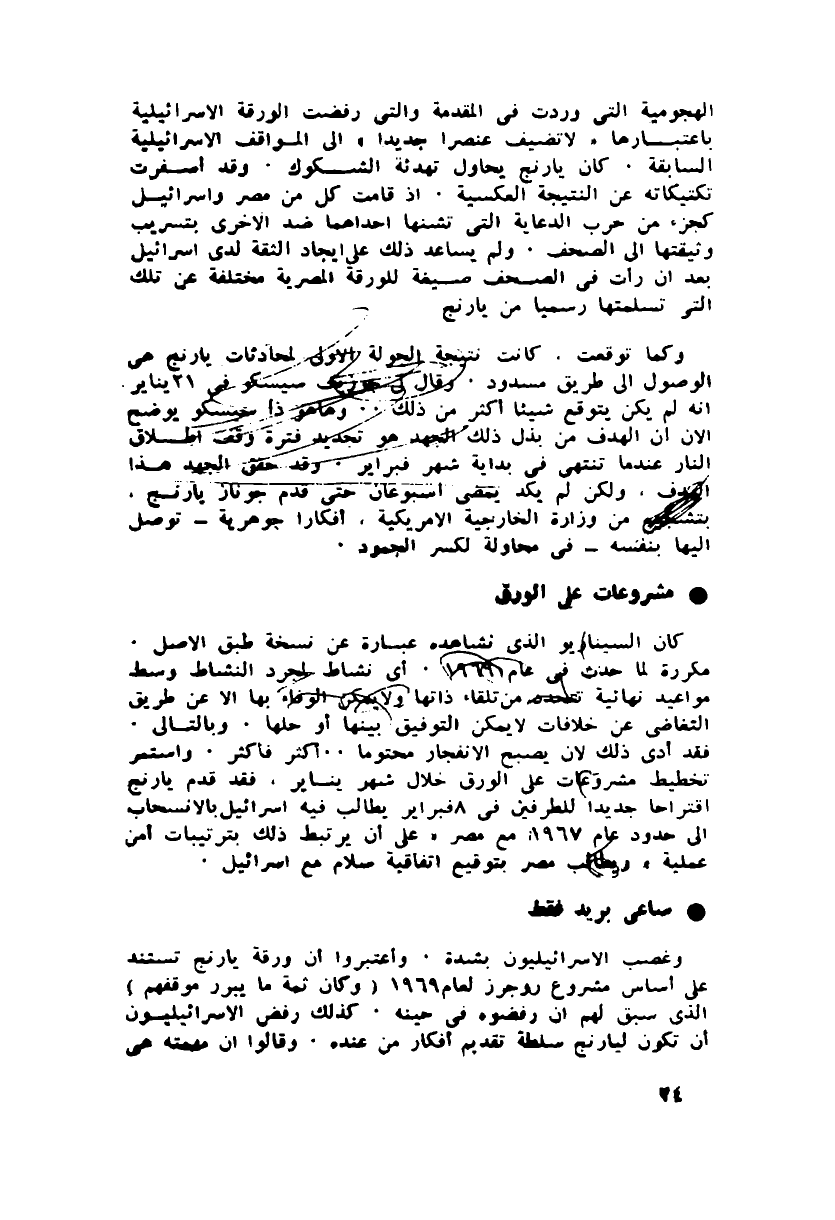 الهجومية التى وردت فى المقدمة والتى رفضت الورقة الاسرائيلية
باعتبــــارها « لاتضيف عنصرا جديدا » الى المـواقف الاسرائيلية
السابقة · كان يارنج يحاول تهدئة الشـــكوك · وقد أسـفرت
تكتيكاته عن النتيجة العكسية · اذ قامت كل من مصر واسرائيـل
كجزء من حرب الدعاية التى تشنها احداهما ضد الاخرى بتسريب
وثيقتها الى الصحف · ولم يساعد ذلك على ايجاد الثقة لدى اسرائيل
بعد ان رأت فى الصـحف صـيغة للورقة المصرية مختلفة عن تلك
التى تسلمتها رسميا من يارنج
وكما توقعت ، كانت نتيجة الجولة الاولى لمحادثات يارنج هى
الوصول الى طريق مسدود · وقال لى جوزيف سيسكو فى ٢١ يناير
انه لم يكن يتوقع شيئا أكثر من ذلك ·· وهاهو ذا سيسكو يوضح
الان ان الهدف من بذل ذلك الجهد هو تجديد فترة وقف اطـلاق
النار عندما تنتهى فى بداية شهر فبراير · وقد حقق الجهد هـذا
الهدف ، ولكن لم يكد يمضى اسبوعان حتى قدم جونار يارنـج ،
بتشجيع من وزارة الخارجية الامريكية ، أفكارا جوهرية – توصل
اليها بنفسه – فى محاولة لكسر الجمود ·
● مشروعات على الورق
كان السيناريو الذى نشاهده عبـارة عن نسخة طبق الاصل ·
مكررة لما حدث فى عام ١٩٦٩ · أى نشاط لمجرد النشاط وسط
مواعيد نهائية تتحدد من تلقاء ذاتها ولايمكن الوفاء بها الا عن طريق
التغاضى عن خلافات لايمكن التوفيق بينها أو حلها · وبالتـالى ·
فقد أدى ذلك لان يصبح الانفجار محتوما ·· أكثر فأكثر · واستمر
تخطيط مشروعات على الورق خلال شهر ينـاير ، فقد قدم يارنج
اقتراحا جديدا للطرفين فى ٨ فبراير يطالب فيه اسرائيل بالانسحاب
الى حدود عام ١٩٦٧ مع مصر « على أن يرتبط ذلك بترتيبات أمن
عملية » ويطالب مصر بتوقيع اتفاقية سلام مع اسرائيل ·
● ساعى بريد فقط
وغضب الاسرائيليون بشدة · وأعتبروا أن ورقة يارنج تستند
على أساس مشروع روجرز لعام ١٩٦٩ ( وكان ثمة ما يبرر موقفهم )
الذى سبق لهم ان رفضوه فى حينه · كذلك رفض الاسرائيليـون
أن تكون ليارنج سلطة تقديم أفكار من عنده · وقالوا ان مهمته هى
٢٤